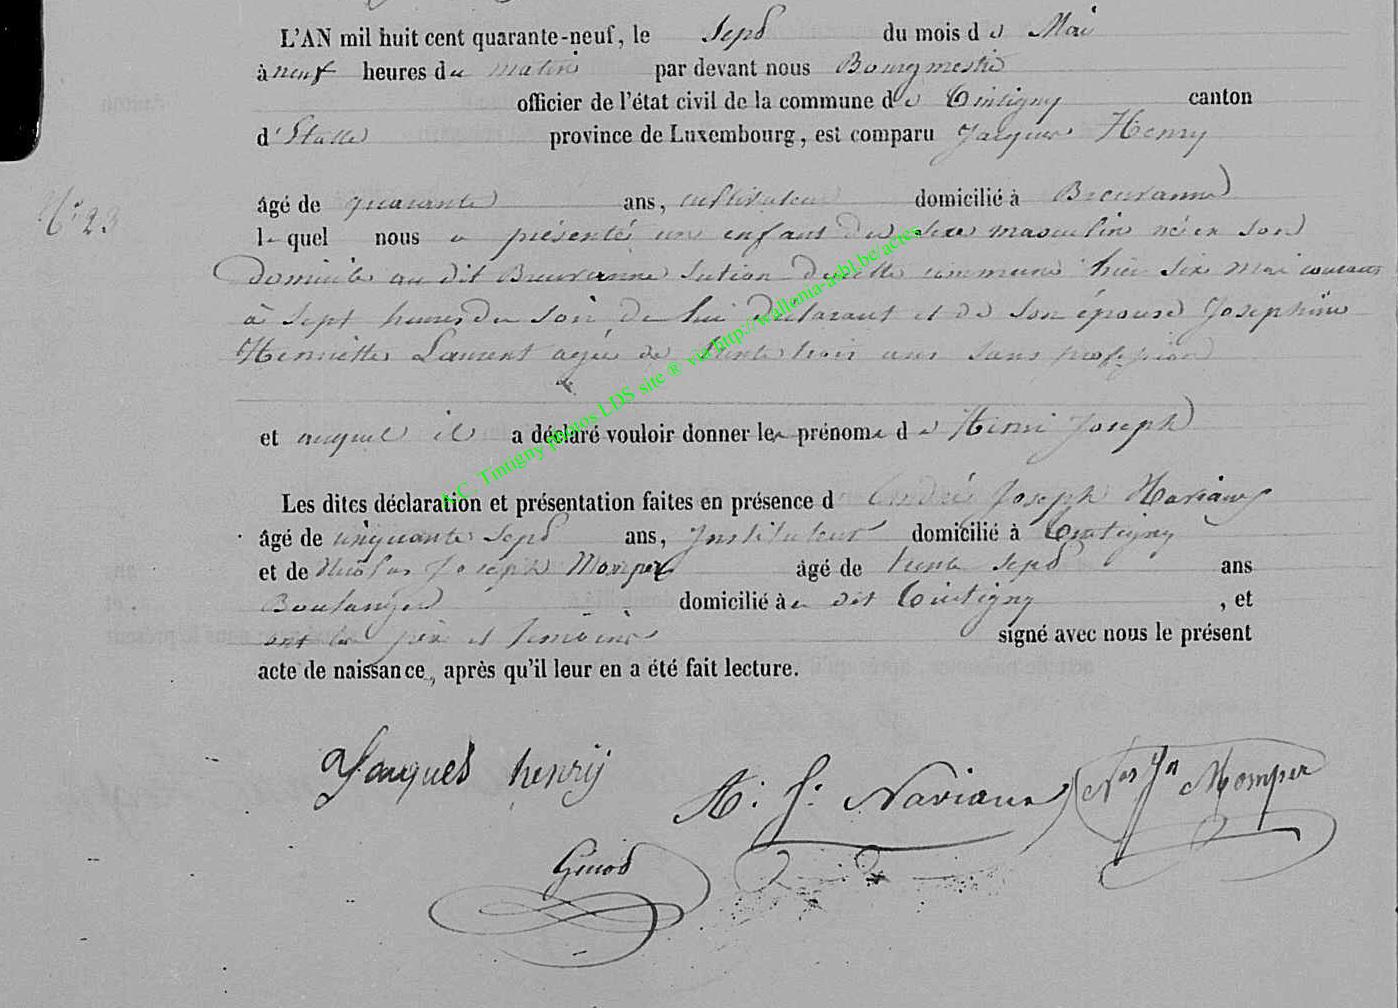 L'AN mil huit cent quarante-neuf, le Sept du mois de Mai
à neuf heures du matin par devant nous Bourgmestre
officier de l'état civil de la commune de Tintigny canton
d'Etalle province de Luxembourg, est comparu Jacques Henry
N° 23
âgé de quarante ans, cultivateur domicilié à Breuvanne
le quel nous a présenté un enfant du sexe masculin né en son
domicile au dit Breuvanne section de cette commune hier six mai courant
à sept heures du soir, de lui déclarant et de son épouse Josephine
Henriette Laurent agée de trente trois ans sans profession
et auquel il a déclaré vouloir donner les prénoms de Henri Joseph
Les dites déclaration et présentation faites en présence d André Joseph Naviaux
âgé de cinquante sept ans, Instituteur domicilié à Tintigny
et de Nicolas Joseph Momper âgé de trente sept ans
Boulanger domicilié à dit Tintigny, et
ont les père et témoins signé avec nous le présent
acte de naissance, après qu'il leur en a été fait lecture.
Jacques henry
A. J. Naviaux
Nas Jh Momper
A.C. Tintigny photos LDS site ® via http://wallonia-asbl.be/actes